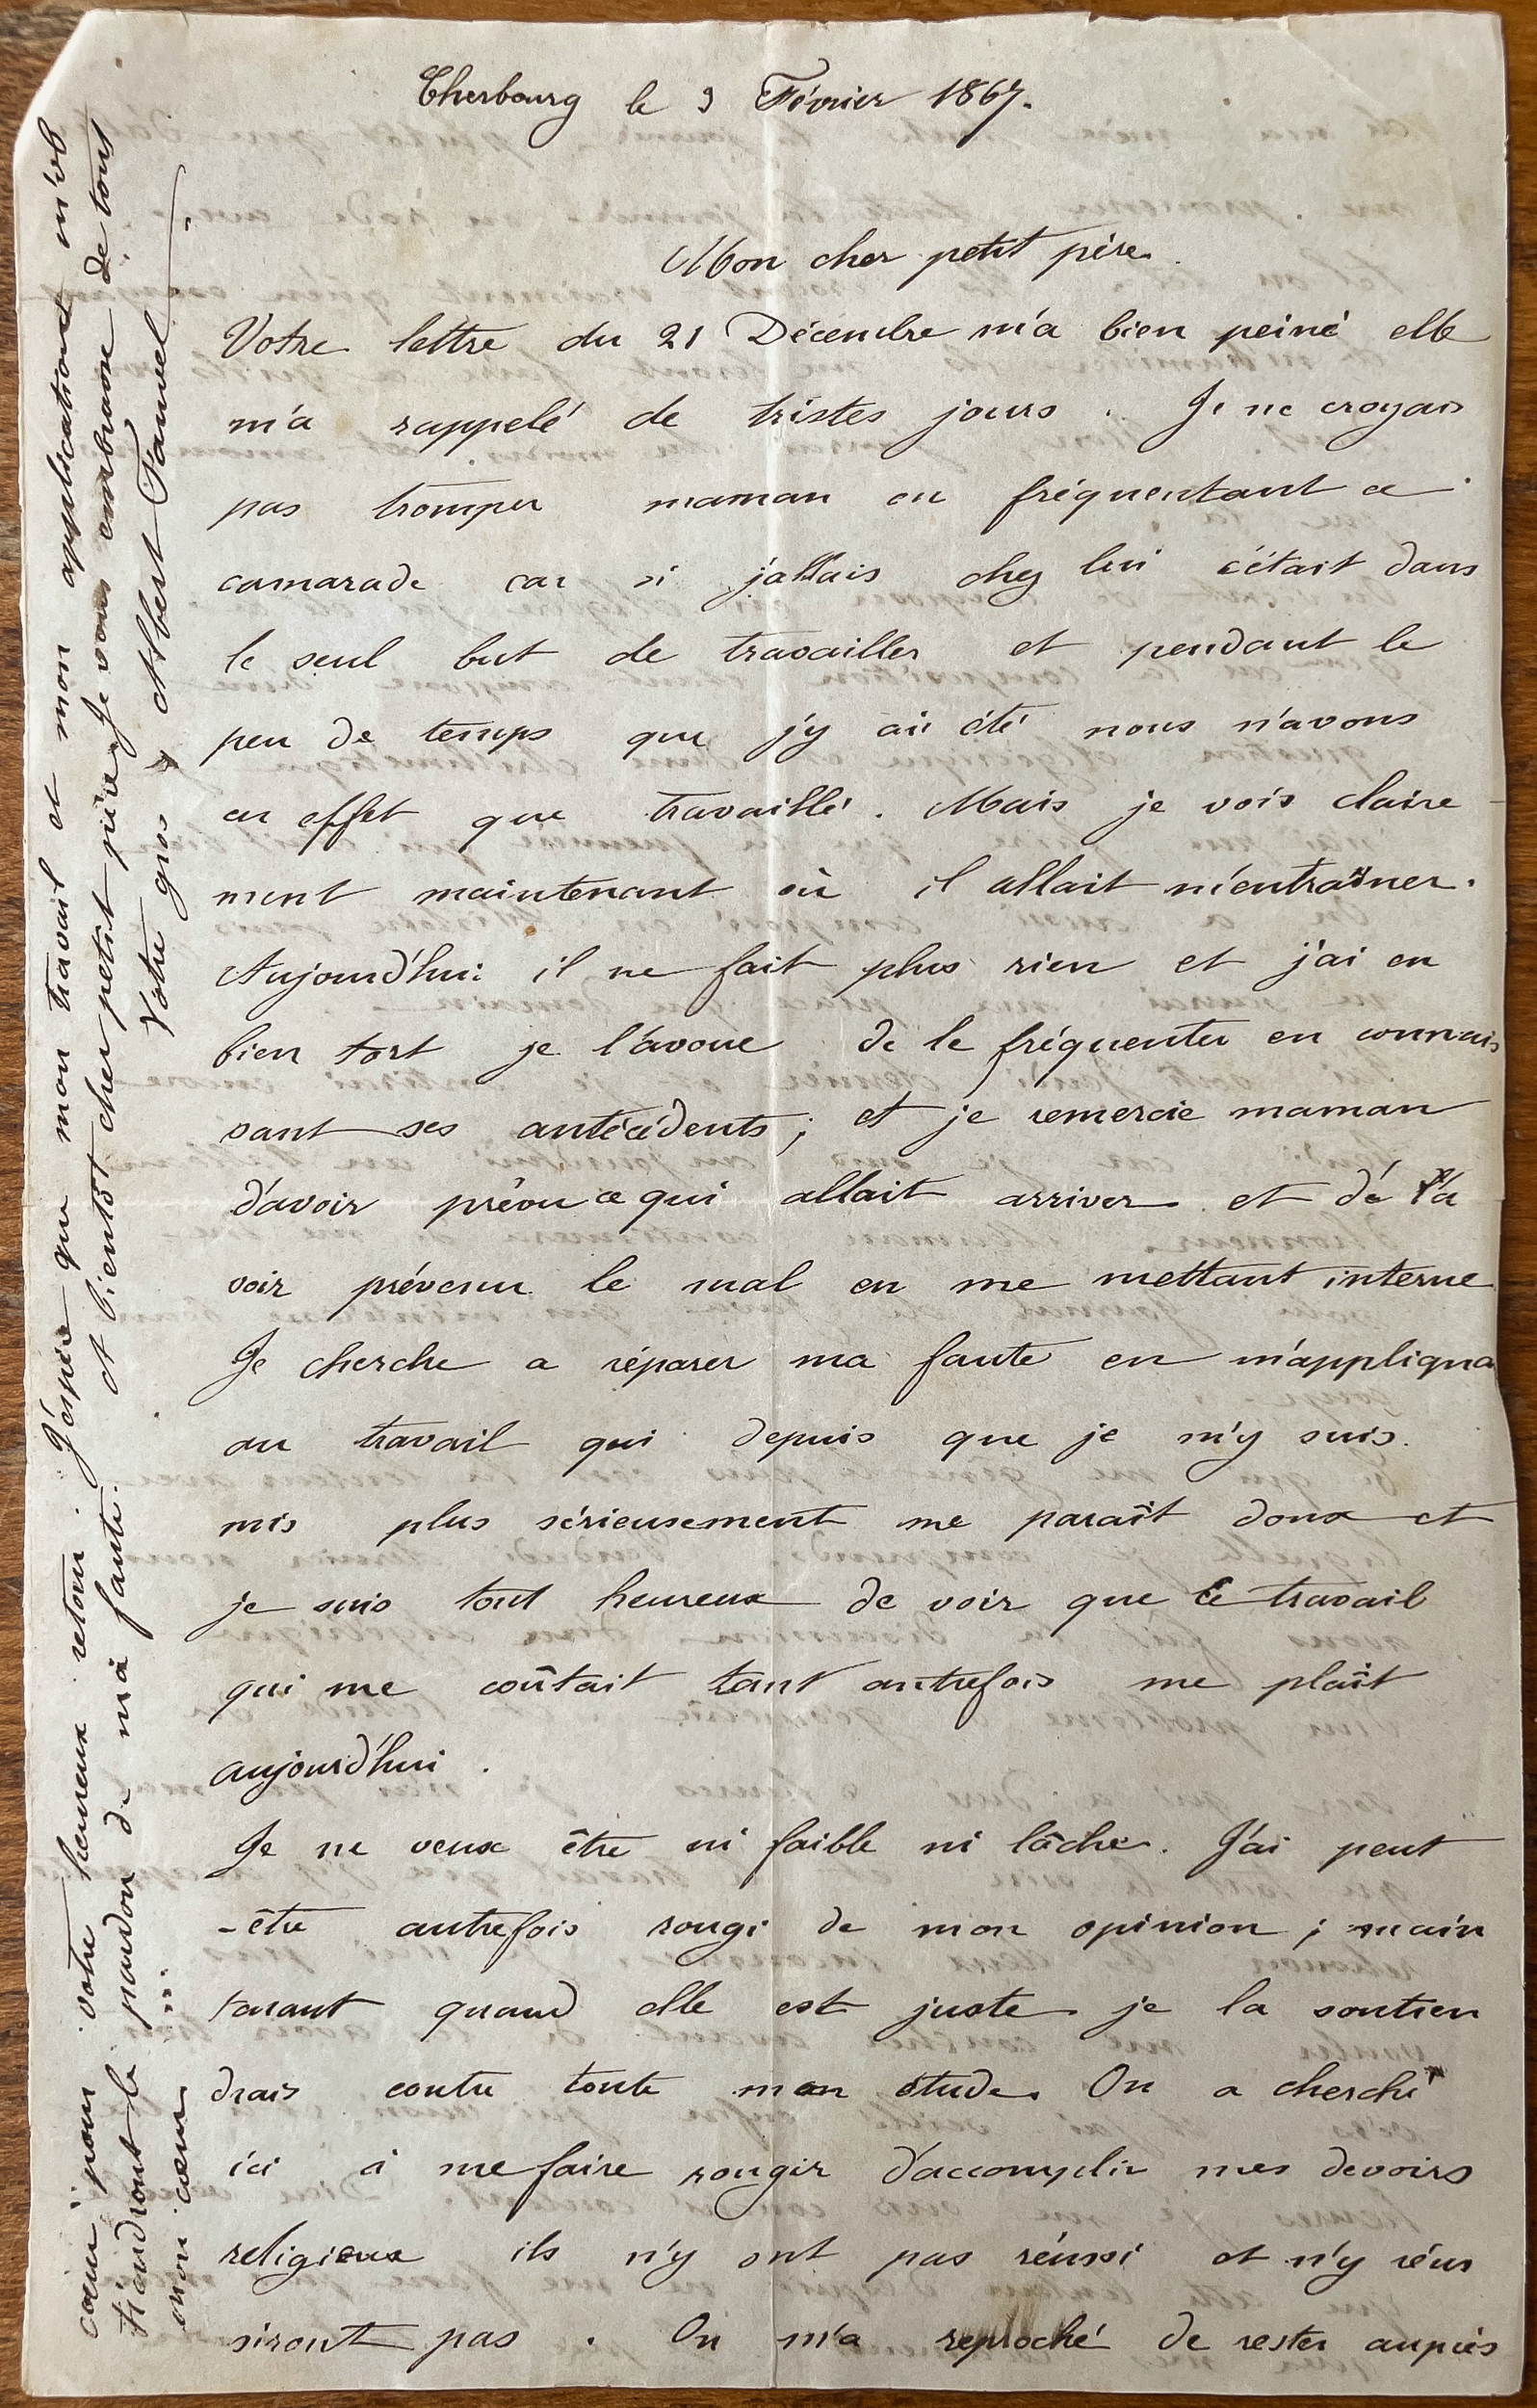 Cherbourg le 9 Février 1867.
Mon cher petit père.
Votre lettre du 21 Décembre m'a bien peiné elle
m'a rappelé de tristes jours. Je ne croyais
pas tromper maman en fréquentant ce
camarade car si j'allais chez lui c'était dans
le seul but de travailler et pendant le
peu de temps que j'y ai été nous n'avons
en effet que travaillé. Mais je vois claire-
ment maintenant où il allait m'entraîner.
Aujourd'hui il ne fait plus rien et j'ai eu
bien tort je l'avoue de le fréquenter en connais
sant ses antécédents; et je remercie maman
d'avoir prévu ce qui allait arriver et d'a
voir prévenu le mal en me mettant interne
Je cherche a réparer ma faute en m'appliqua
au travail qui depuis que je m'y suis
mis plus sérieusement me paraît doux et
je suis tout heureux de voir que ce travail
qui me coûtait tant autrefois me plaît
aujourd'hui.
Je ne veux être ni faible ni lâche. J'ai peut
-être autrefois rougi de mon opinion; main
tenant quand elle est juste je la soutien
drais contre toute mon étude. On a cherché
ici à me faire rougir d'accomplir mes devoirs
religieux ils n'y ont pas réussi et n'y réus
siront pas. On m'a reproché de rester auprès
cœur pour votre heureux retour. J'espère que mon travail et mon application m'ob
tiendront le pardon de ma faute. et bientôt cher petit père je vous embrasse de tout
mon cœur Votre gros Albert Fauvel